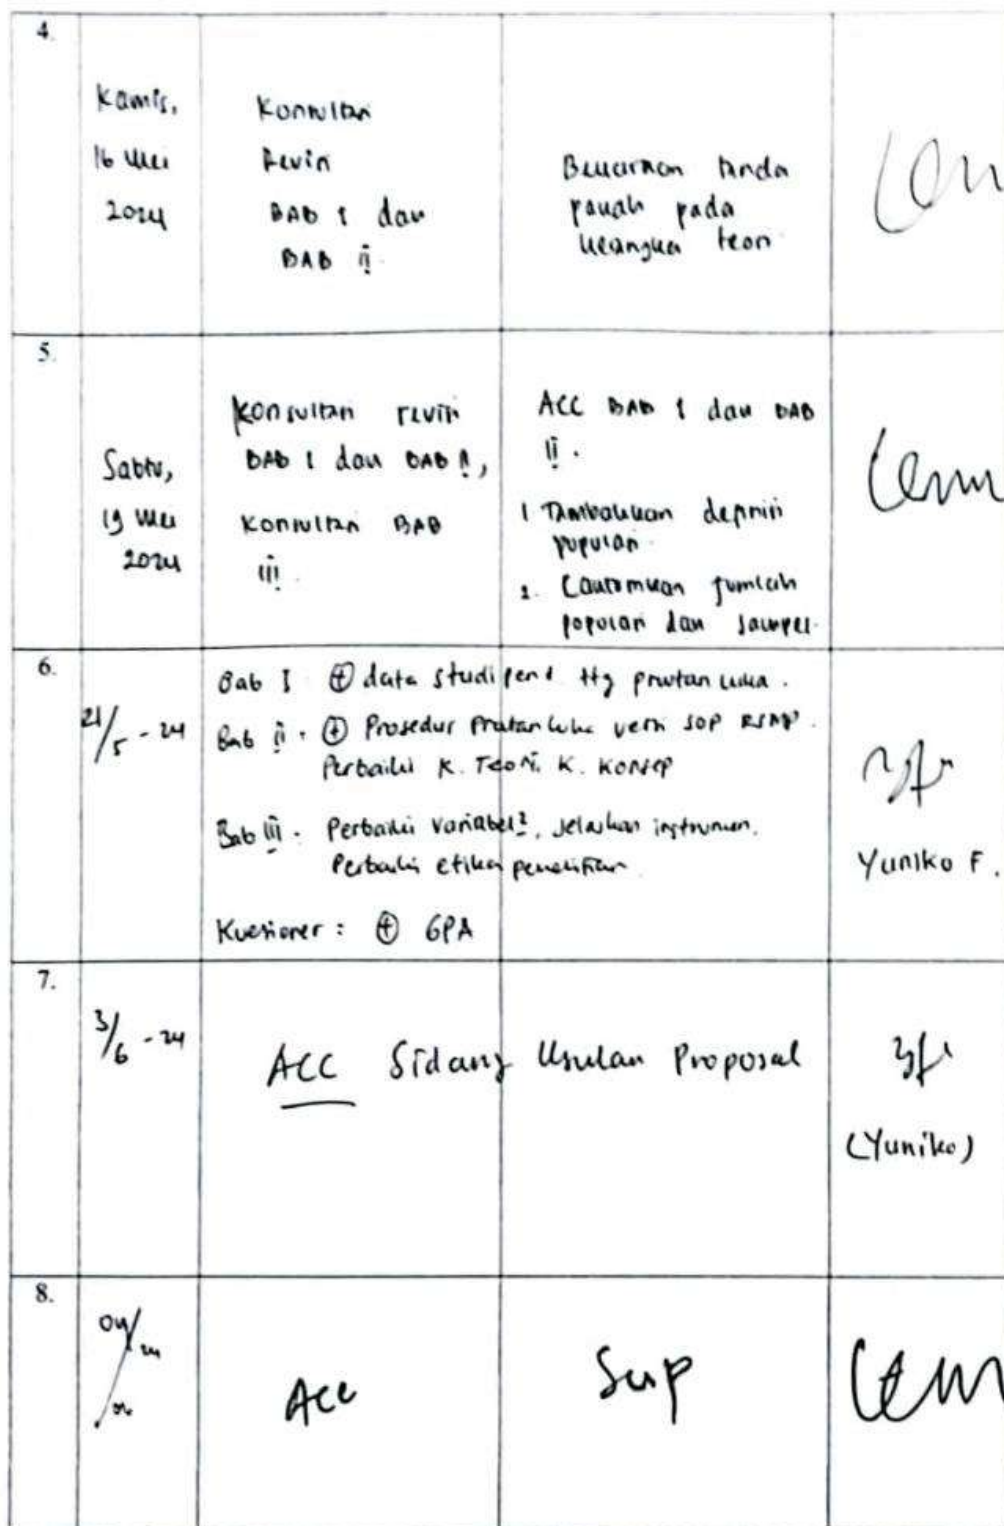 4.
Kamis,
16 Mei
2024
Konsultasi
Revisi
BAB I dan
BAB II.
Benarkan tanda
panah pada
kerangka teori.
5.
Sabtu,
19 Mei
2024
Konsultasi revisi
BAB I dan BAB II,
Konsultasi BAB
III.
ACC BAB I dan BAB
II.
1 Tambahkan depinisi
populasi.
2. Cantumkan jumlah
populasi dan sampel.
6.
21/5 - 24
Bab I ⊕ data studi pend ttg prwtan luka.
Bab II : ⊕ Prosedur prwtan luka versi SOP
Perbaiki K. Teori, K. Konsep
Bab III . Perbaiki variabel², jelaskan instrumen.
Perbaiki etika penelitian.
Kuesioner : ⊕ GPA
Yuniko F.
7.
3/6 - 24
ACC Sidang Usulan Proposal
(Yuniko)
8.
04/06/24
Acc
Sup